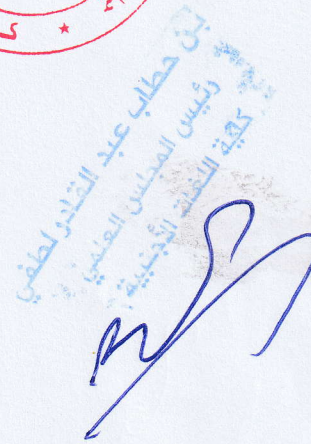 بن حطاب عبد القادر لطفي
رئيس المجلس العلمي
كلية اللغات الأجنبية